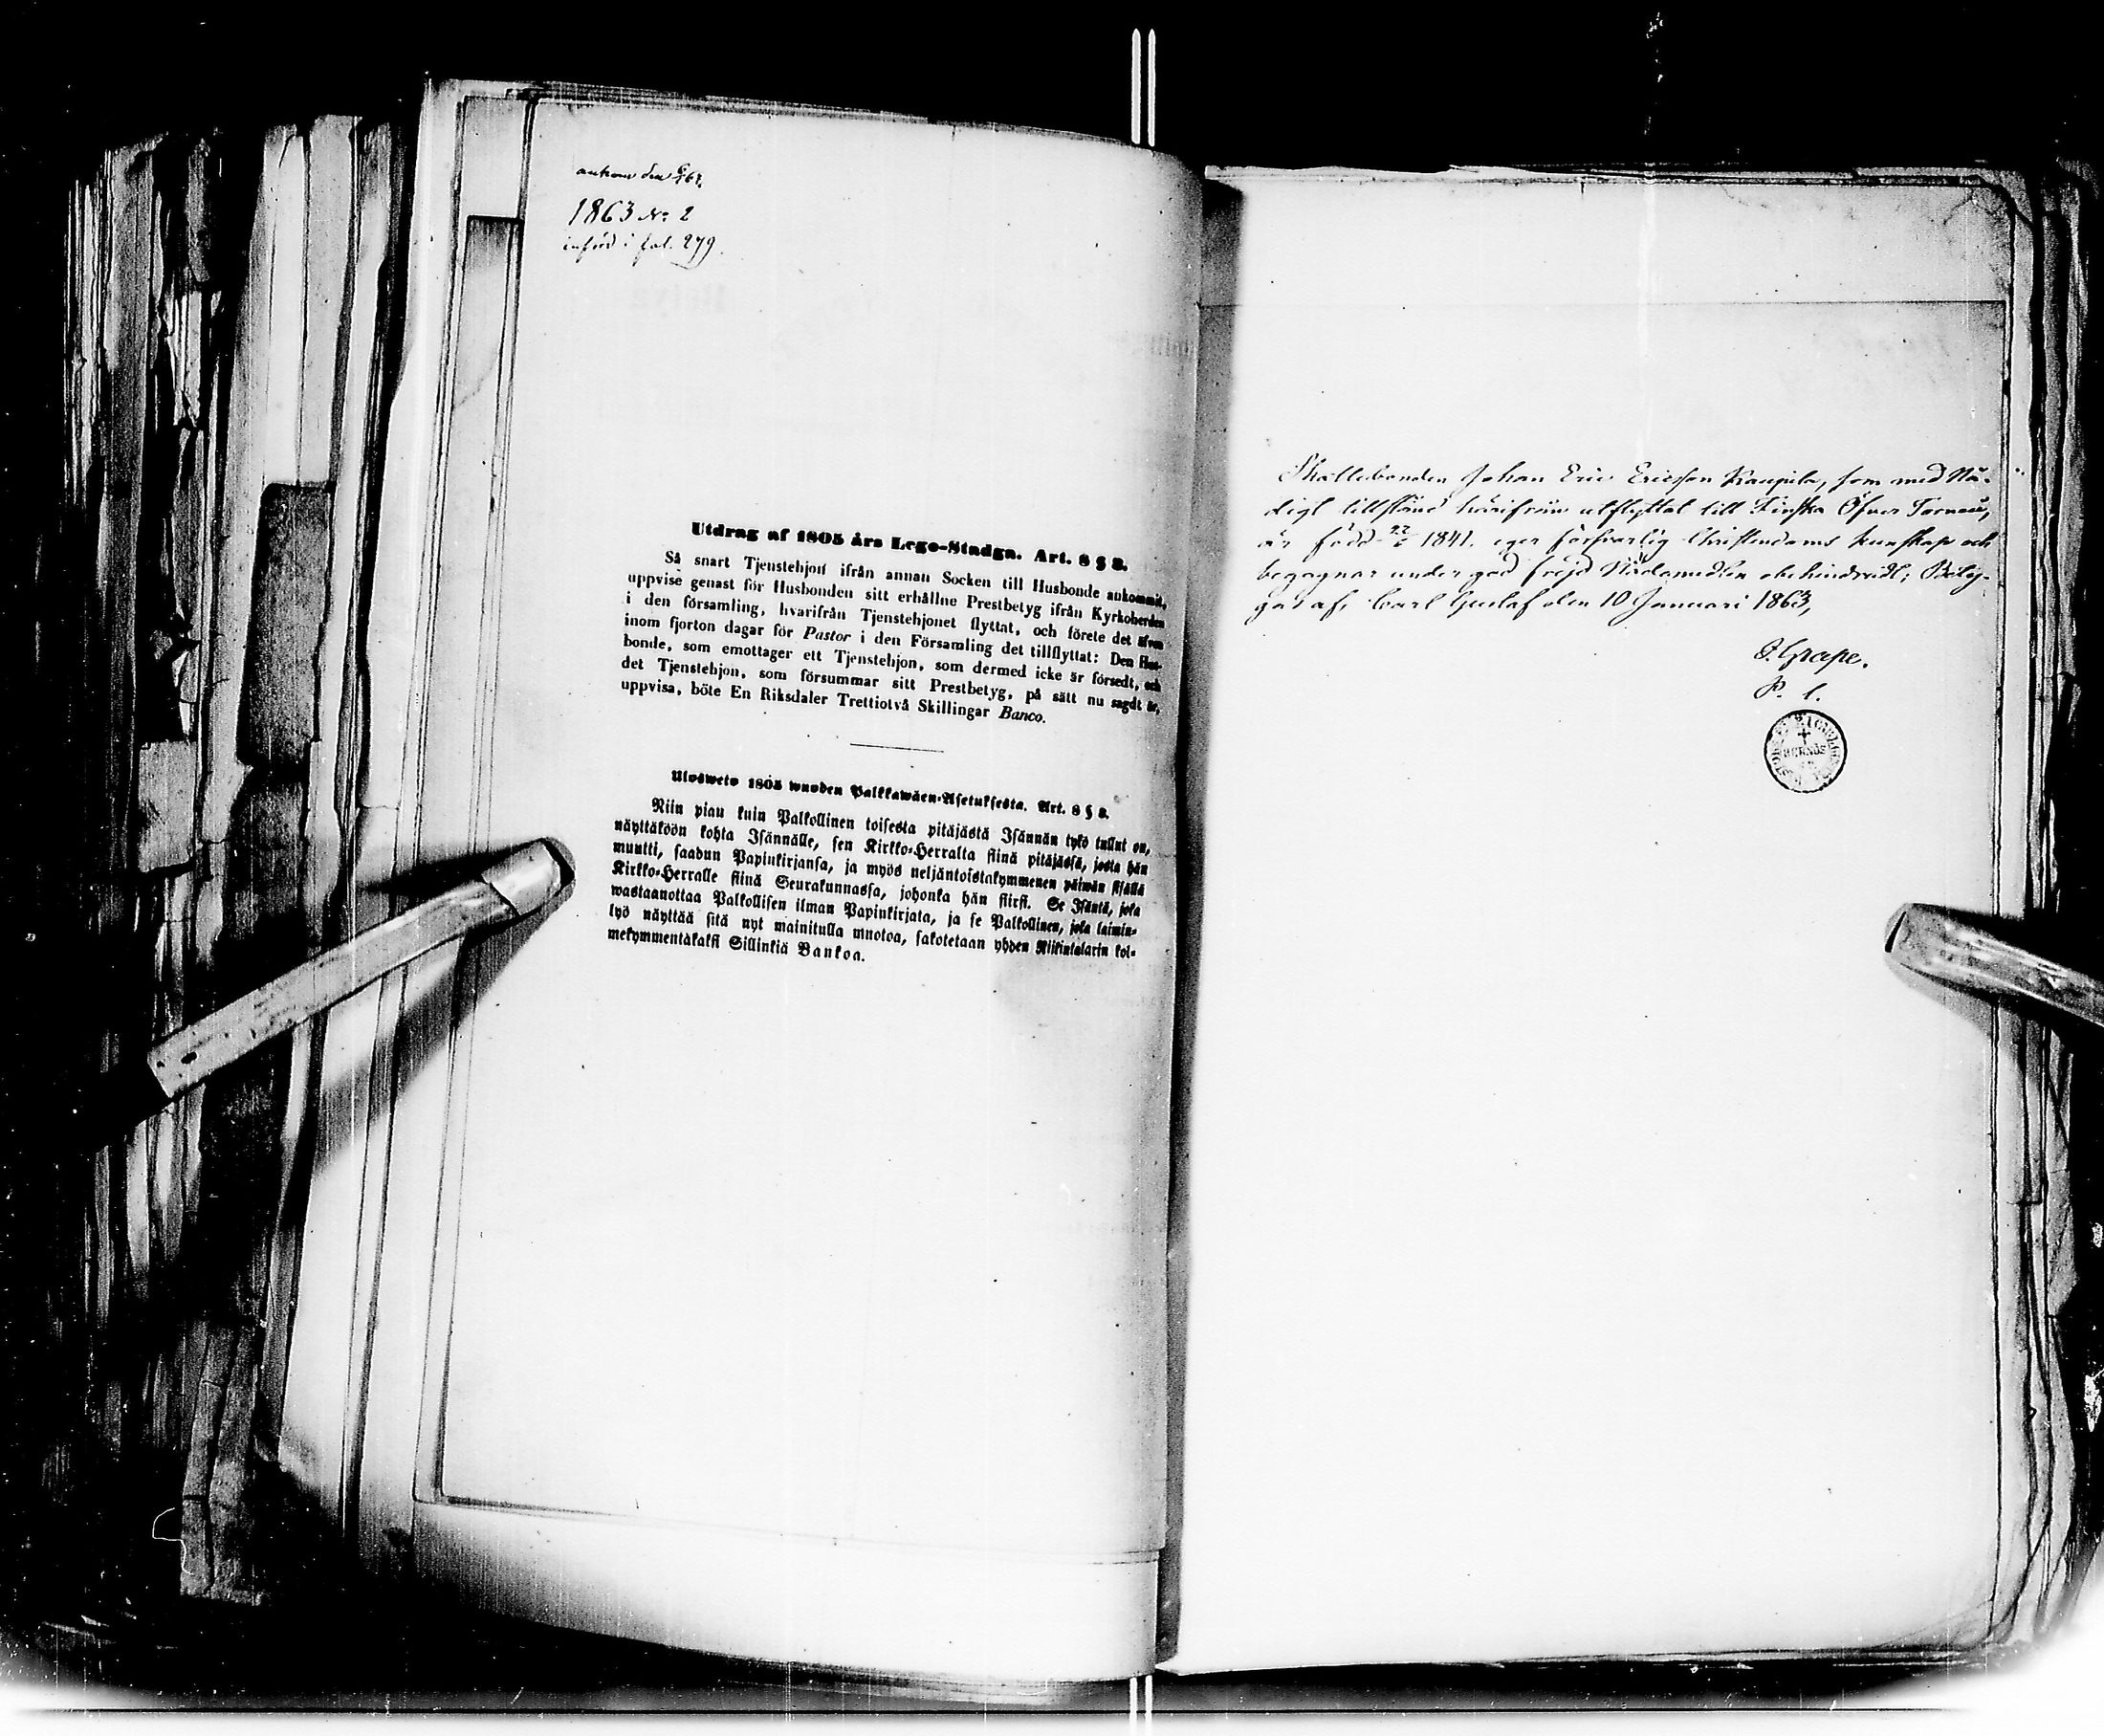 ankom den
1863 No 2
införd i fol. 279.
Utdrag af 1805 års Lego-Stadga. Art. 8 § 8.
Så snart Tjenstehjon ifrån annan Socken till Husbonde ankommit,
uppvise genast för Husbonden sitt erhållne Prestbetyg ifrån Kyrkoherden
i den församling, hvarifrån Tjenstehjonet flyttat, och förete det äfven
inom fjorton dagar för Pastor i den Församling det tillflyttat: Den Hus-
bonde, som emottager ett Tjenstehjon, som dermed icke är försedt, och
det Tjenstehjon, som försummar sitt Prestbetyg, på sätt nu sagdt är,
uppvisa, böte En Riksdaler Trettiotvå Skillingar Banco.
Ulosweto 1805 wuoden Palkkawäen-Asetuksesta. Art. 8 § 8.
Niin pian kuin Palkollinen toisesta pitäjästä Isännän tykö tullut on,
näyttäköön kohta Isännälle, sen Kirkko-Herralta siinä pitäjässä, josta hän
muutti, saadun Papinkirjansa, ja myös neljäntoistakymmenen päiwän sisällä
Kirkko-Herralle siinä Seurakunnassa, johonka hän siirsi. Se Isäntä, joka
wastaanottaa Palkollisen ilman Papinkirjata, ja se Palkollinen, joka laimin-
lyö näyttää sitä nyt mainitulla muotoa, sakotetaan yhden Riikintalarin kol-
mekymmentäkaksi Sillinkiä Bankoa.
Skattebonden Johan Eric Ericsson Kaupila, som med Nå-
digt tillstånd härifrån utflyttat till Finska Öfver Torneå,
är född 1841. eger försvarlig Christendoms kunskap och
begagnar under god frejd Nådemedlen obehindradt; Bety-
gas af, Carl Gustaf den 10 Januari 1863,
J. Grape.
P. l.